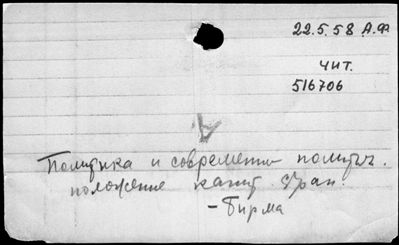 22.5.58 А.Ф
чит.
516706
А
Политика и современ. политич.
положение капит. стран.
- Бирма